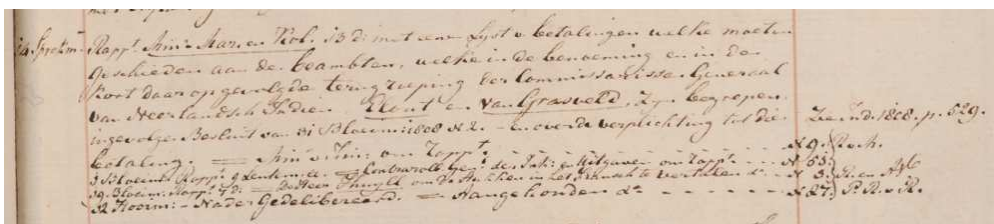 14 Sprokm. Rappt. Min. Mar. en Kol. 13 d: met eene Lyst v betalingen welke moeten
geschieden aan de beambten, welke in de benoeming en in de
kort daarop gevolgde terugroeping der Commissarissen Generaal
van Neerlandsch Indien Elout en van Grasveld, zyn begrepen
ingevolge Besluit van 31 Bloeim: 1808 N 2. en over de verplichting tot die Zie Ind. 1808. p. 529.
betaling. = Min v Fin: om rappt. N 9.
3 Bloeim. Rappt. en Controlle gen. der Ink: en Uitgaven om rappt. N 53.
29 Bloeim. Rappt. = De Heer om de stukken in het Fransch te vertalen N 3.
22 Hooim: Nader Gedelibereerd. = Aangehouden N 27. P. R. v R.